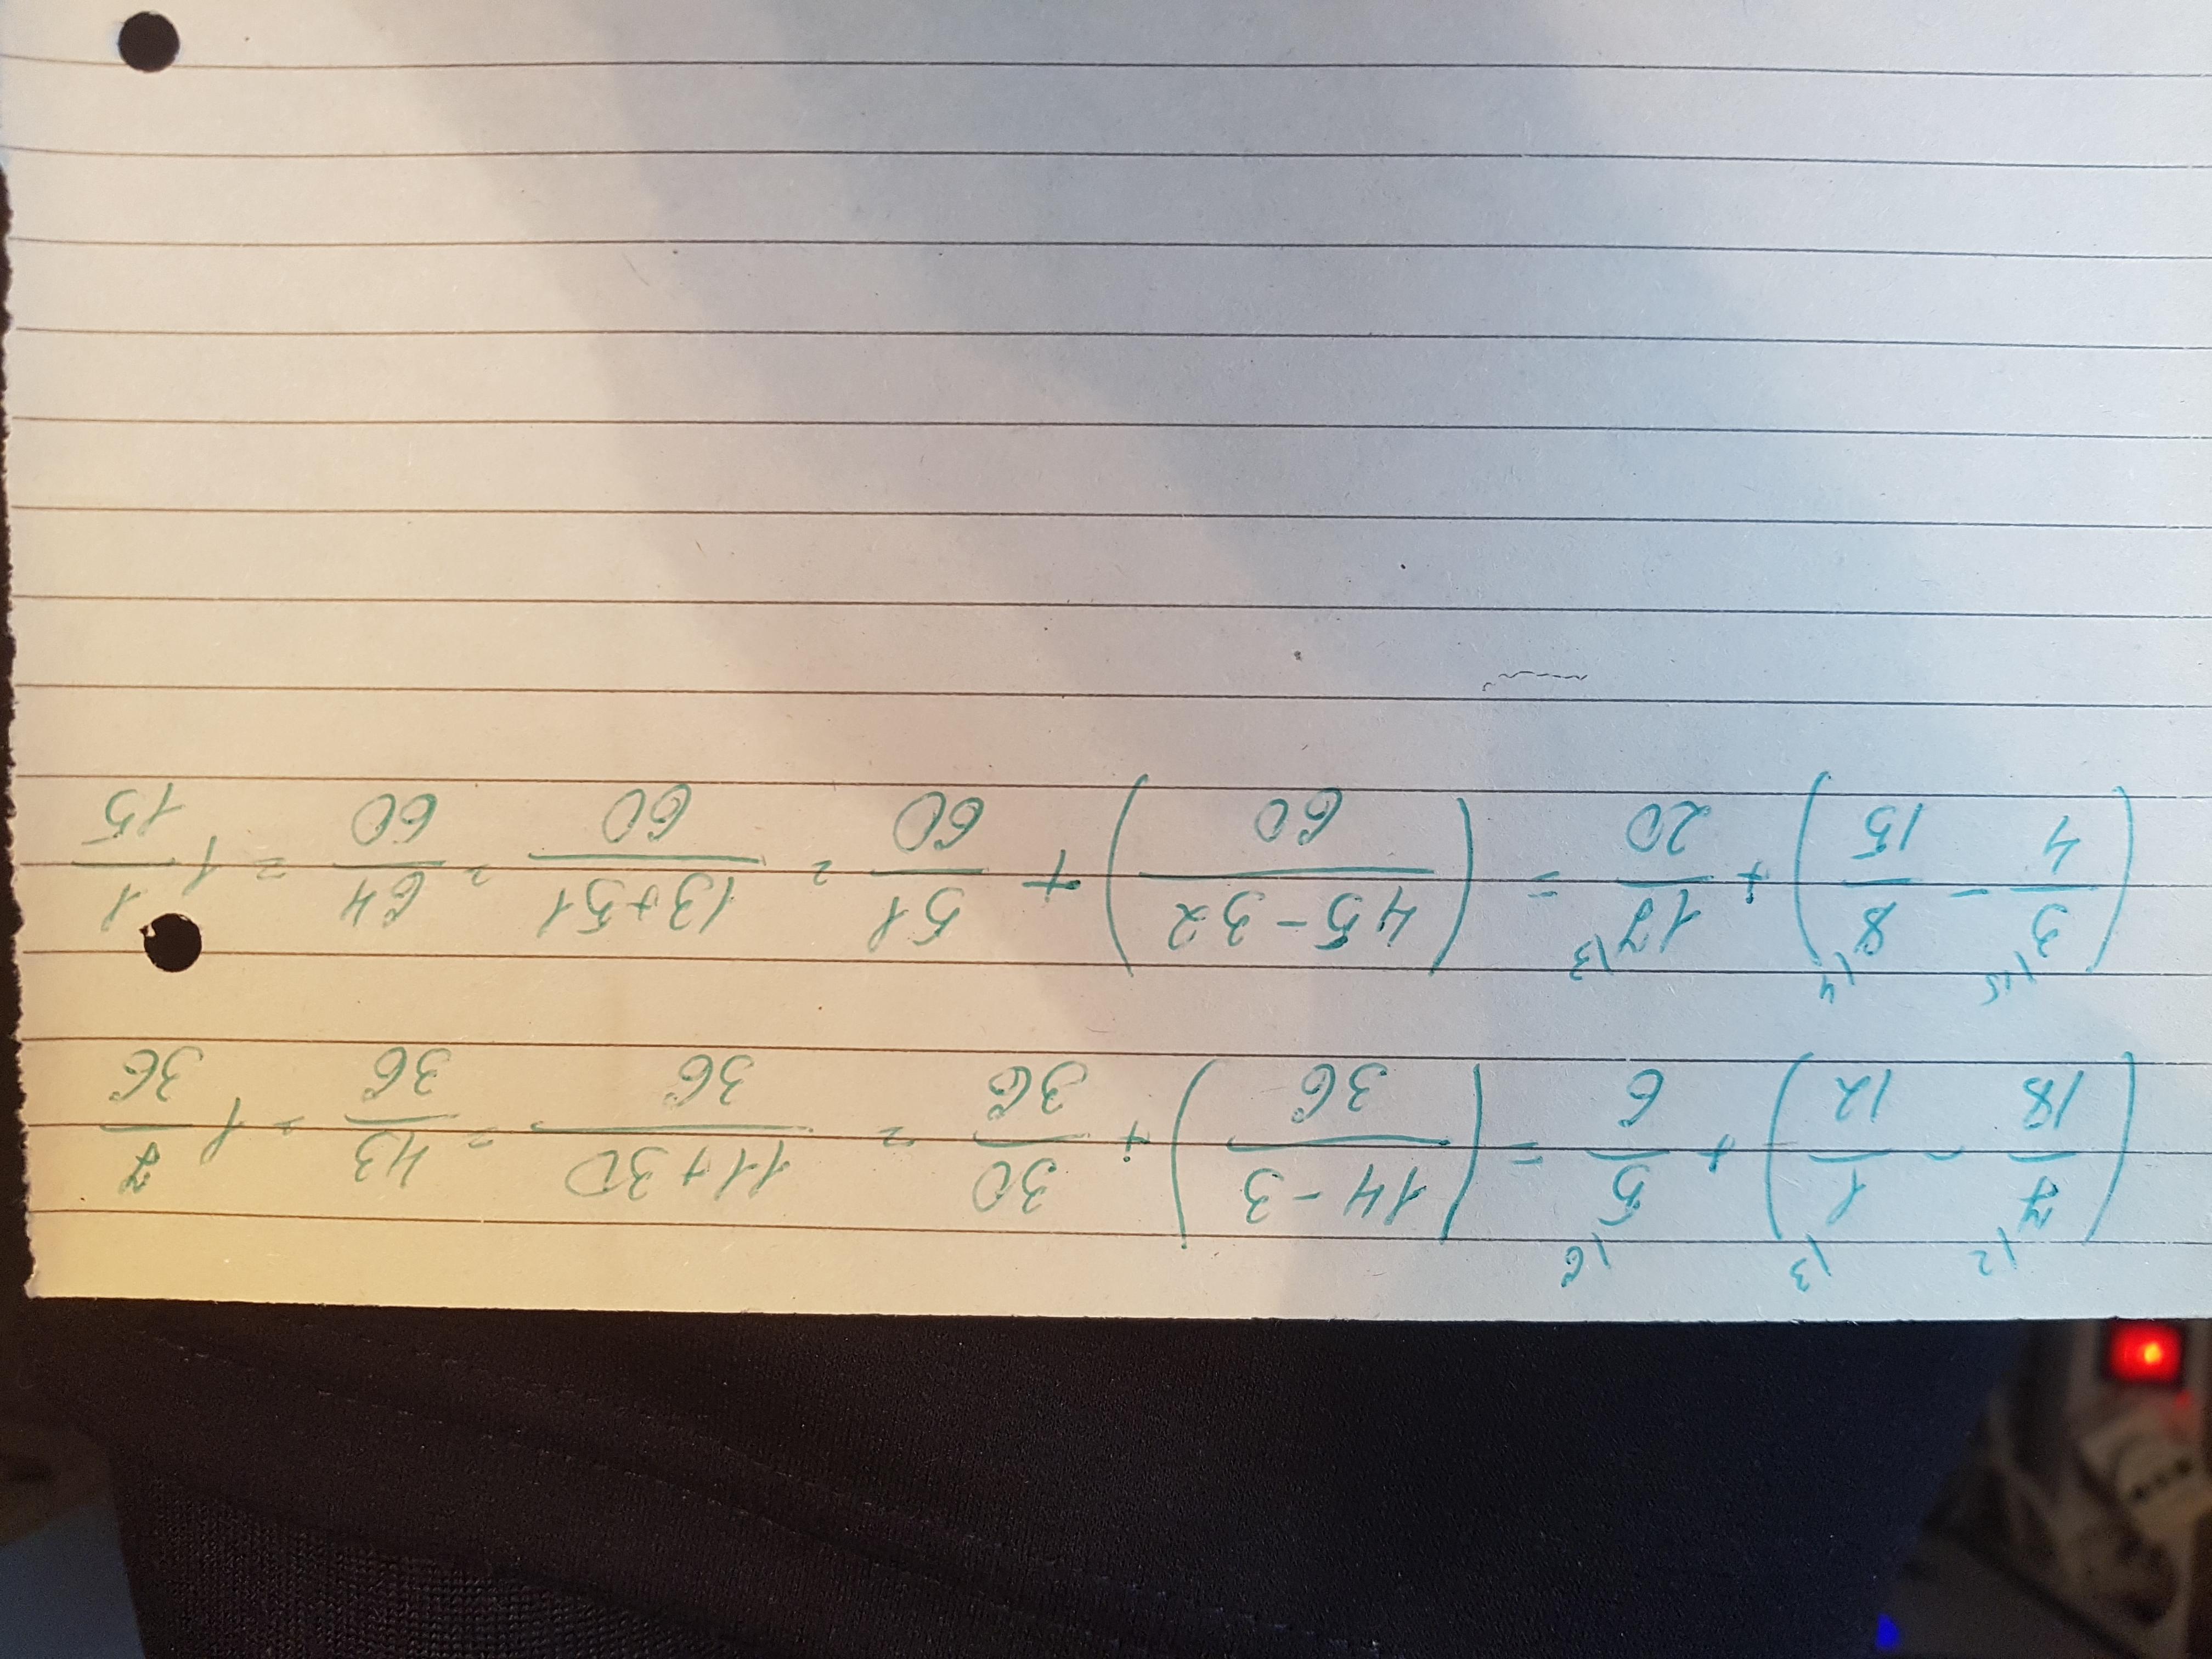 (7\2/18 - 1\3/12) + 5\6/6 = (14-3/36) + 30/36 = 11+30/36 = 43/36 = 1 7/36
(3\15/4 - 8\4/15) + 17\3/20 = (45-32/60) + 51/60 = 13+51/60 = 64/60 = 1 1/15